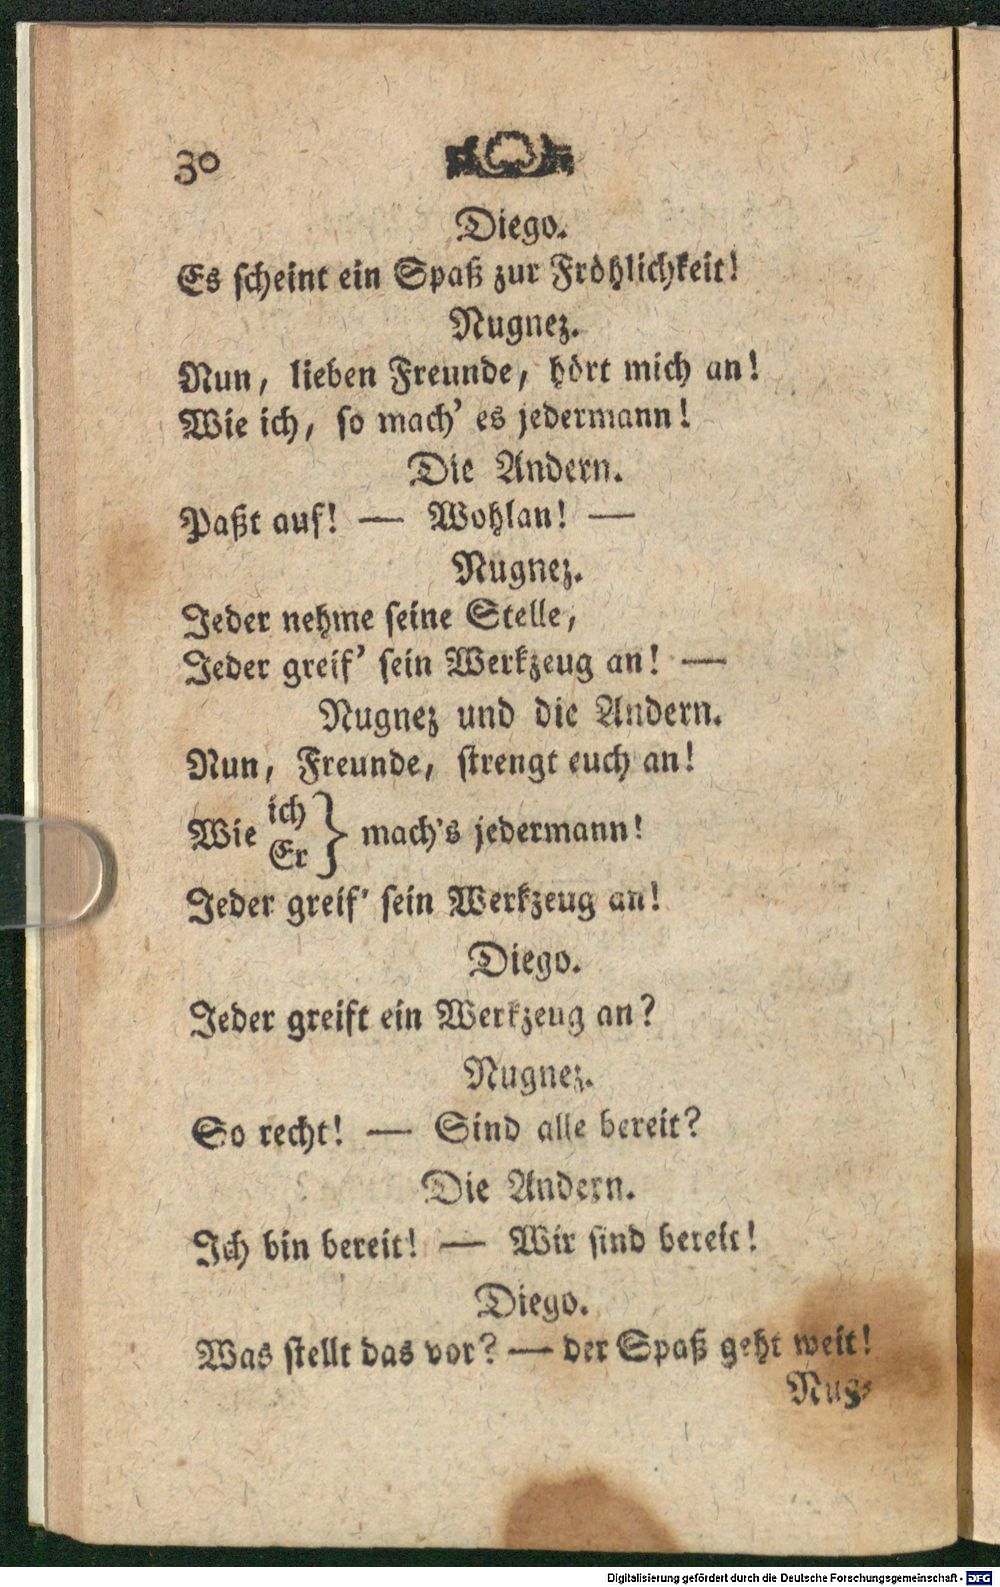 30
Diego.
Es scheint ein Spaß zur Fröhlichkeit!
Nugnez.
Nun, lieben Freunde, hört mich an!
Wie ich, so mach' es jedermann!
Die Andern.
Paßt auf! — Wohlan! —
Nugnez.
Jeder nehme seine Stelle,
Jeder greif' sein Werkzeug an! —
Nugnez und die Andern.
Nun, Freunde, strengt euch an!
Wie ich } mach's jedermann!
Er
Jeder greif' sein Werkzeug an!
Diego.
Jeder greift ein Werkzeug an?
Nugnez.
So recht! — Sind alle bereit?
Die Andern.
Ich bin bereit! — Wir sind bereit!
Diego.
Was stellt das vor? — der Spaß geht weit!
Nug-
Digitalisierung gefördert durch die Deutsche Forschungsgemeinschaft - DFG